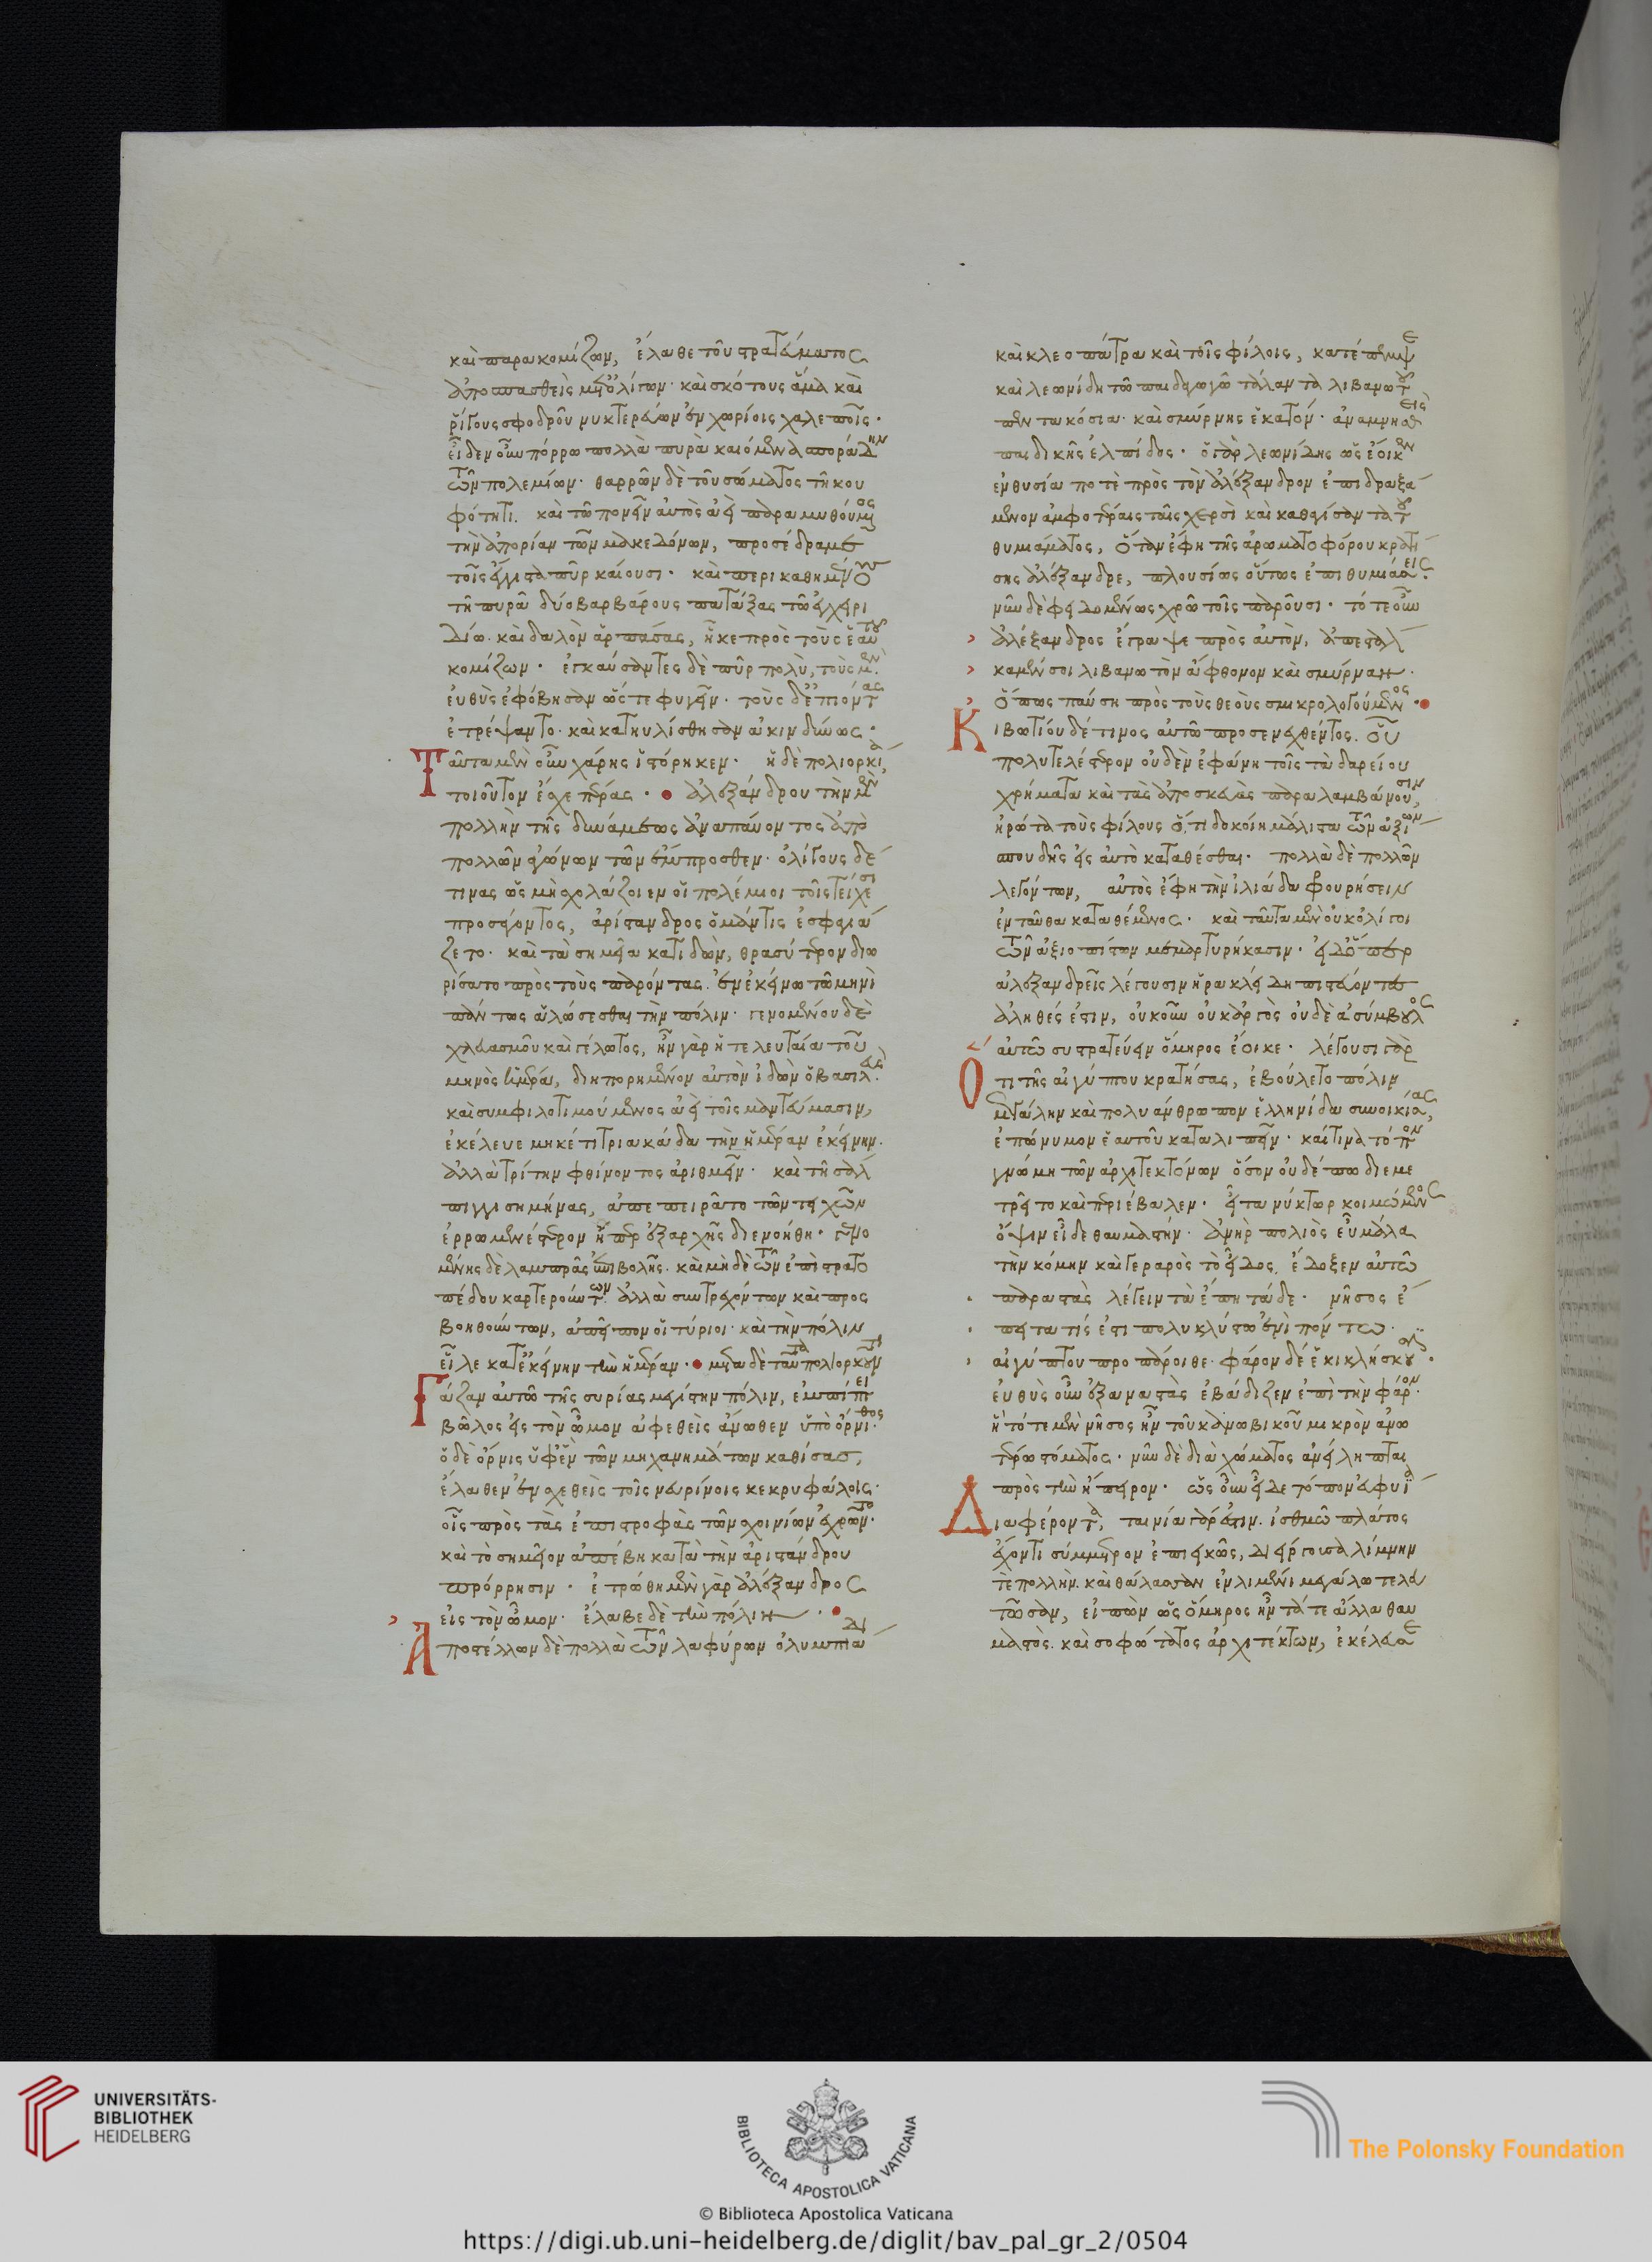 καὶ παρακομίζων, ἔλαθε τοῦ στρατεύματος
ἀποσπασθεὶς μετ' ὀλίγων· καὶ σκότους ἅμα καὶ
ῥίγους σφοδροῦ νυκτερεύων ἐν χωρίοις χαλεποῖς·
εἶδεν οὖν πόρρω πολλὰ πυρὰ καιόμενα σποράδην
τῶν πολεμίων· θαρρῶν δὲ τοῦ σώματος τῆ κου
φότητι. καὶ τῶ πονεῖν αὐτὸς ἀεὶ παραμυθούμενος
τὴν ἀπορίαν τῶν μακεδόνων, προσέδραμε
τοῖς ἔγγιστα πῦρ καίουσι· καὶ περικαθημένους
τῆ πυρᾶ δύο βαρβάρους πατάξας τῶ ἐγχειρι
δίω· καὶ δαλὸν ἁρπάσας, ἧκε πρὸς τοὺς ἑαυτοῦ
κομίζων· ἐγκαύσαντες δὲ πῦρ πολὺ, τοὺς μὲν
εὐθὺς ἐφόβησαν ὥστε φυγεῖν· τοὺς δ' ἐπιόντας
ἐτρέψαντο· καὶ κατηυλίσθησαν ἀκινδύνως·
Ταῦτα μὲν οὖν χάρης ἱστόρηκεν· ἡ δὲ πολιορκία
τοιοῦτον ἔσχε πέρας· ἀλεξάνδρου τὴν μὲν
πολλὴν τῆς δυνάμεως ἀναπαύοντος ἀπὸ
πολλῶν ἀγώνων τῶν ἔμπροσθεν· ὀλίγους δέ
τινας ὡς μὴ σχολάζοιεν οἱ πολέμιοι τοῖς τείχεσι
προσάγοντος, ἀρίστανδρος ὁ μάντις ἐσφαγιά
ζετο· καὶ τὰ σημεῖα κατιδὼν, θρασύτερον διω
ρίσατο πρὸς τοὺς παρόντας· ἐν ἐκείνω τῶ μηνὶ
πάντως ἁλώσεσθαι τὴν πόλιν· γενομένου δὲ
χλευασμοῦ καὶ γέλωτος, ἦν γὰρ ἡ τελευταία τοῦ
μηνὸς ἡμέρα, διηπορημένον αὐτὸν ἰδὼν ὁ βασιλεὺς
καὶ συμφιλοτιμούμενος ἀεὶ τοῖς μαντεύμασιν,
ἐκέλευε μηκέτι τριακάδα τὴν ἡμέραν ἐκείνην·
ἀλλὰ τρίτην φθίνοντος ἀριθμεῖν· καὶ τῆ σάλ
πιγγι σημήνας, ἀπεπειρᾶτο τῶν τειχῶν
ἐρρωμενέστερον ἤπερ ἐξαρχῆς διενοήθη· γενο
μένης δὲ λαμπρᾶς ἐπιβολῆς· καὶ μηδὲ τῶν ἐπὶ στρατο
πέδου καρτερούντων· ἀλλὰ συντρεχόντων καὶ προς
βοηθούντων, ἀπεῖπον οἱ τύριοι· καὶ τὴν πόλιν
εἷλε κατ' ἐκείνην τὴν ἡμέραν· μετὰ δὲ ταῦτα πολιορκοῦντι
Γάζαν αὐτῶ τῆς συρίας μεγίστην πόλιν, ἐμπίπτει
βῶλος εἰς τὸν ὦμον ἀφεθεὶς ἄνωθεν ὑπὸ ὄρνιθος·
ὁ δὲ ὄρνις ὑφ' ἓν τῶν μηχανημάτων καθίσας,
ἔλαθεν ἐνσχεθεὶς τοῖς νευρίνοις κεκρυφάλοις·
οἷς πρὸς τὰς ἐπιστροφὰς τῶν σχοινίων ἐχρῶντο·
καὶ τὸ σημεῖον ἀπέβη κατὰ τὴν ἀριστάνδρου
πρόρρησιν· ἐτρώθη μὲν γὰρ ἀλέξανδρος
εἰς τὸν ὦμον· ἔλαβε δὲ τὴν πόλιν·
Ἀποστέλλων δὲ πολλὰ τῶν λαφύρων ὀλυμπιάδι
καὶ κλεοπάτρα καὶ τοῖς φίλοις, κατέπεμψε
καὶ λεωνίδη τῶ παιδαγωγῶ τάλαντα λιβανωτοῦ
πεντακόσια· καὶ σμύρνης ἑκατόν· ἀναμνησθεὶς
παιδικῆς ἐλπίδος· ὁ γὰρ λεωνίδης ὡς ἔοικεν
ἐν θυσία ποτὲ πρὸς τὸν ἀλέξανδρον ἐπιδραξά
μενον ἀμφοτέραις ταῖς χερσὶ καὶ καθαγίσαντα τοῦ
θυμιάματος, ὅταν ἔφη τῆς ἀρωματοφόρου κρατή
σης ἀλέξανδρε, πλουσίως οὕτως ἐπιθυμιάσεις·
νῦν δὲ φειδομένως χρῶ τοῖς παροῦσι· τότε οὖν
ἀλέξανδρος ἔγραψε πρὸς αὐτὸν, ἀπεστάλ
καμέν σοι λιβανωτὸν ἄφθονον καὶ σμύρναν·
ὅπως παύση πρὸς τοὺς θεοὺς σμικρολογούμενος·
Κιβωτίου δέ τινος αὐτῶ προσενεχθέντος. οὗ
πολυτελέστερον οὐδὲν ἐφάνη τοῖς τὰ δαρείου
χρήματα καὶ τὰς ἀποσκευὰς παραλαμβάνουσιν,
ἠρώτα τοὺς φίλους ὅ,τι δοκοίη μάλιστα τῶν ἀξίων
σπουδῆς εἰς αὐτὸ καταθέσθαι· πολλὰ δὲ πολλῶν
λεγόντων, αὐτὸς ἔφη τὴν ἰλιάδα φρουρήσειν
ἐνταῦθα καταθέμενος· καὶ ταῦτα μὲν οὐκ ὀλίγοι
τῶν ἀξιοπίστων μεμαρτυρήκασιν· εἰ δ' ὅπερ
ἀλεξανδρεῖς λέγουσιν ἡρακλείδη πιστεύοντες
ἀληθές ἐστιν, οὐκοῦν οὐκ ἀργὸς οὐδὲ ἀσύμβολος
αὐτῶ συστρατεύειν ὅμηρος ἔοικε· λέγουσι γὰρ
Ὅτι τῆς αἰγύπτου κρατήσας, ἐβούλετο πόλιν
μεγάλην καὶ πολυάνθρωπον ἑλληνίδα συνοικίσας,
ἐπώνυμον ἑαυτοῦ καταλιπεῖν· καί τινα τόπον
γνώμη τῶν ἀρχιτεκτόνων ὅσον οὐδέπω διεμε
τρεῖτο καὶ περιέβαλεν· εἶτα νύκτωρ κοιμώμενος
ὄψιν εἶδε θαυμαστήν· ἀνὴρ πολιὸς εὖ μάλα
τὴν κόμην καὶ γεραρὸς τὸ εἶδος, ἔδοξεν αὐτῶ
παραστὰς λέγειν τὰ ἔπη τάδε· νῆσος ἔ
πειτα τίς ἐστι πολυκλύστω ἐνὶ πόντω·
αἰγύπτου προπάροιθε· φάρον δέ ἑ κικλήσκουσιν·
εὐθὺς οὖν ἐξαναστὰς ἐβάδιζεν ἐπὶ τὴν φάρον·
ἣ τότε μὲν νῆσος ἦν τοῦ κανωβικοῦ μικρὸν ἀνω
τέρω στόματος· νῦν δὲ διὰ χώματος ἀνείληπται
πρὸς τὴν ἤπειρον· ὡς οὖν εἶδε τόπον εὐφυΐα
Διαφέροντα, ταινία γάρ ἐστιν· ἰσθμῶ πλάτος
ἔχοντι σύμμετρον ἐπιεικῶς, διείργουσα λίμνην
τε πολλὴν· καὶ θάλασσαν ἐν λιμένι μεγάλω τελευ
τῶσαν, εἰπὼν ὡς ὅμηρος ἦν τά τε ἄλλα θαυ
μαστὸς· καὶ σοφώτατος ἀρχιτέκτων, ἐκέλευσε
UNIVERSITÄTS-
BIBLIOTHEK
HEIDELBERG
BIBLIOTECA APOSTOLICA VATICANA
The Polonsky Foundation
© Biblioteca Apostolica Vaticana
https://digi.ub.uni-heidelberg.de/diglit/bav_pal_gr_2/0504